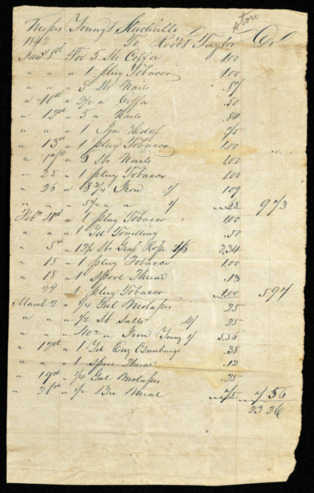 Messrs Young & Studiville
1842 To Robt Taylor Dr
Jany 8th For 5 lb Coffa 1.00
" " " 1 plug Tobacco 1.00
" " " 5 lb Nails .87
" 10th " Coffa .50
" 13th " 5 " Nails .80
" " " 1
" 15th " 1 plug Tobacco 1.00
" " lb Nails 1.00
" 25 " 1 plug Tobacco 1.00
" 26 " 8 3/4 Iron 1.09
" " " " 973
Feby " 1 plug Tobacco 1.00
" " " 1 Yd Toweling .50
" 5th " lb Rope 2.34
" 15 " 1 plug Tobacco 1.00
" 18 " 1 Spool Thread .13
" 27 1 plug Tobacco 1.00 597
March 2 " Gal Molasses .25
" " " lb Salt .25
" " " Iron 5.56
" 17th " 1 Yd .38
" " " 1 Spool Thread .12
" 19th " Gal Molasses .25
" 28th " Meal 7 56
23 26